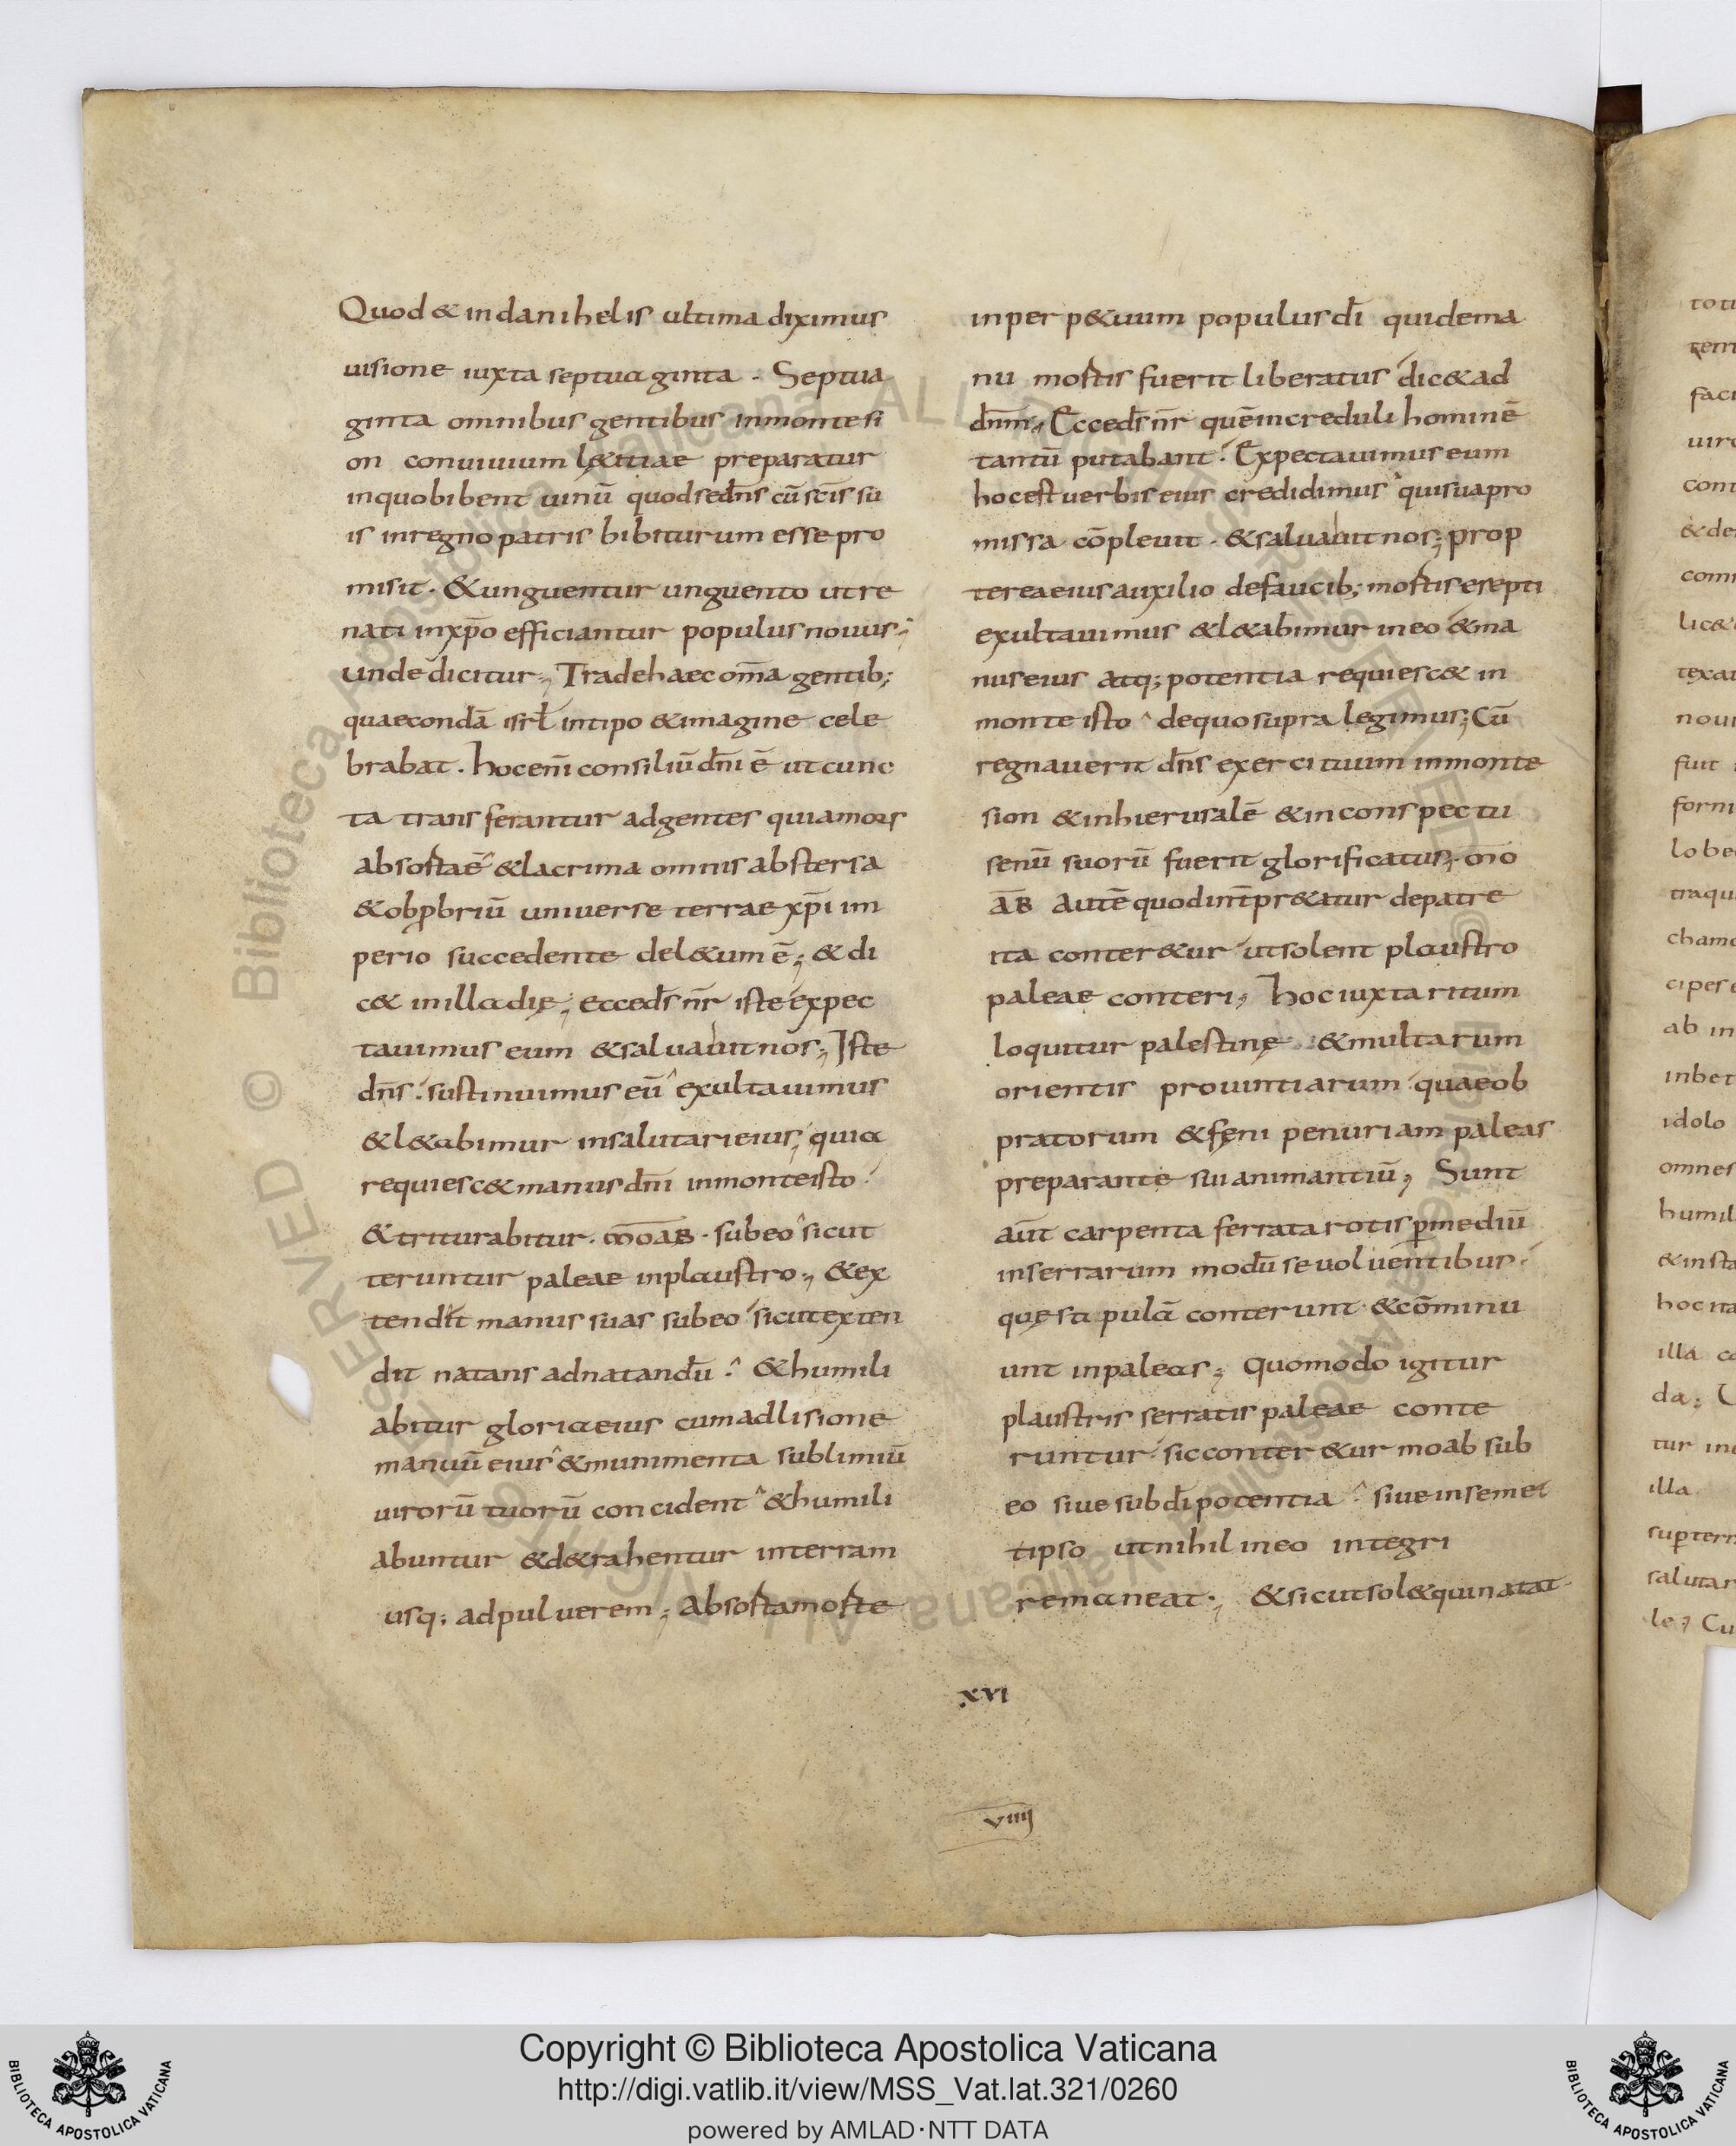 Quod & in danihelis ultima diximus
uisione iuxta septuaginta . Septua
ginta omnibus gentibus inmonte si
on conuiuium l&itiae preparatur
inquo bibent uinū quod se dn̄s cū sc̄is su
is inregno patris bibiturum esse pro
misit . & unguentur unguento ut re
nati inxp̄o efficiantur populus nouus ;
unde dicitur ; Trade haec om̄a gentib;
quaecondā isrl̄ intipo & imagine cele
brabat . hocenī consiliū dn̄i ē ut cunc
ta transferantur adgentes quia mors
absorta ē & lacrima omnis abstersa
& obprbriū universe terrae xp̄i im
perio succedente del&um ē ; & di
c& in illa die ; ecce ds̄ nr̄ iste expec
tauimus eum & saluabit nos ; Iste
dn̄s . sustinuimus eū exultauimus
& l&abimur insalutari eius , quia
requiesc& manus dn̄i inmonte isto
& triturabitur . MOAB . sub eo sicut
teruntur paleae inplaustro ; & ex
tendit manus suas sub eo sicut exten
dit natans adnatandū . & humili
abitur gloria eius cum adlisione
manuū eius & munimenta sublimiū
uirorū tuorū concident & humili
abuntur & d&rahentur interram
usq; adpuluerem ; Absorta morte
inperp&uum populus dī qui dema
nu mortis fuerit liberatus dic& ad
dn̄m ; Ecce ds̄ nr̄ quē increduli hominē
tantū putabant . Expectauimus eum
hoc est uerbis eius credidimus qui sua pro
missa cōpleuit . & saluabit nos ; prop
terea eius auxilio defaucib; mortis erepti
exultauimus & l&abimur in eo & ma
nus eius atq; potentia requiesc& in
monte isto de quo supra legimus ; Cū
regnauerit dn̄s exercituum inmonte
sion & inhierusalē & inconspectu
senū suorū fuerit glorificatus ; MO
AB autē quod int̄pr&atur depatre
ita conter&ur ut solent plaustro
paleae conteri ; hoc iuxta ritum
loquitur palestinę & multarum
orientis prouintiarum quae ob
pratorum & fęni penuriam paleas
preparant esui animantiū ; Sunt
aūt carpenta ferrata rotis p̄ mediū
inserrarum modū se uoluentibus
quę stipulā conterunt & cōminu
unt inpaleas ; Quomodo igitur
plaustris serratis paleae conte
runtur sic conter&ur moab sub
eo siue sub dī potentia siue insemet
tipso ut nihil in eo integri
remaneat . ; & sicut sol& qui natat
XVI
VIIII
Copyright © Biblioteca Apostolica Vaticana
http://digi.vatlib.it/view/MSS_Vat.lat.321/0260
powered by AMLAD·NTT DATA